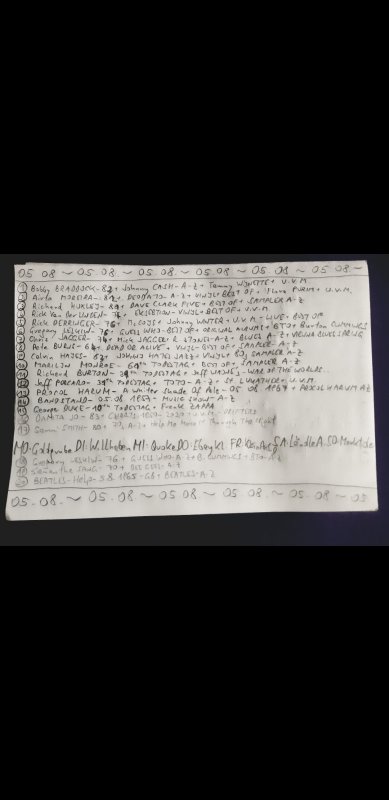 05.08 ~ 05.08 ~ 05.08 ~ 05.08 ~ 05.08 ~ 05.08 ~
① Bobby BRADDOCK - 82 + Johnny CASH - A-Z + Tammy WYNETTE + U.V.M.
② Airto MOREIRA - 81 + DEODATO - A-Z + VINYL + BEST OF + Flora PURIM + U.V.M.
③ Richard HUXLEY - 82 + DAVE CLARK FIVE + BEST OF + SAMPLER A-Z
④ Rick Van Der LINDEN - 76 + EKSEPTION - VINYL + BEST OF + U.V.M.
⑤ Rick DERRINGER - 76 + McCOYS + Johnny WINTER + U.V.M. - LIVE + BEST OF
⑥ Gregory LESKIW - 76 + GUESS WHO - BEST OF + ORIGINAL ALBUMS + BTO + Burton CUMMINGS
⑦ Chris JAGGER - 74 + Mick JAGGER R STONES - A-Z + BLUES A-Z + VIENNA BLUES SPRING
⑧ Pete BURNS - 64 + DEAD OR ALIVE + VINYL - BEST OF + SAMPLER - A-Z
⑨ Calvin HAYES - 62 + JOHNNY HATES JAZZ + VINYL + 80s SAMPLER A-Z
⑩ MARILYN MONROE - TODESTAG + BEST OF + SAMPLER A-Z
⑪ Richard BURTON - 39th TODESTAG + Jeff WAYNE - WAR OF THE WORLDS..
⑫ Jeff PORCARO - TODESTAG + TOTO - A-Z + St. LUKATHER + U.V.M.
⑬ PROCOL HARUM - A Whiter Shade Of Ale - 05 08 1967 + PROCOL HARUM AZ
⑭ BANDSTAND - 05.08 1957 - MUSIC SHOW - A-Z
⑮ George DUKE - 10th TODESTAG + Frank ZAPPA
DAMITA JO - + 1959 - + U.V.M - DRIFTERS
Sammi SMITH - 80 + A-Z + Help Me Make It Through The Night
MO. DI. MI. DO. FR. SA. SO.
Gregory LESKIW - 76 + GUESS WHO - A-Z + B. CUMMINGS + BTO A-Z
SANG - 70 + BEE GEES A-Z
BEATLES - Help - 5.8.1965 - GB + BEATLES - A-Z
05.08 ~ 05.08 ~ 05.08 ~ 05.08 ~ 05.08 ~ 05